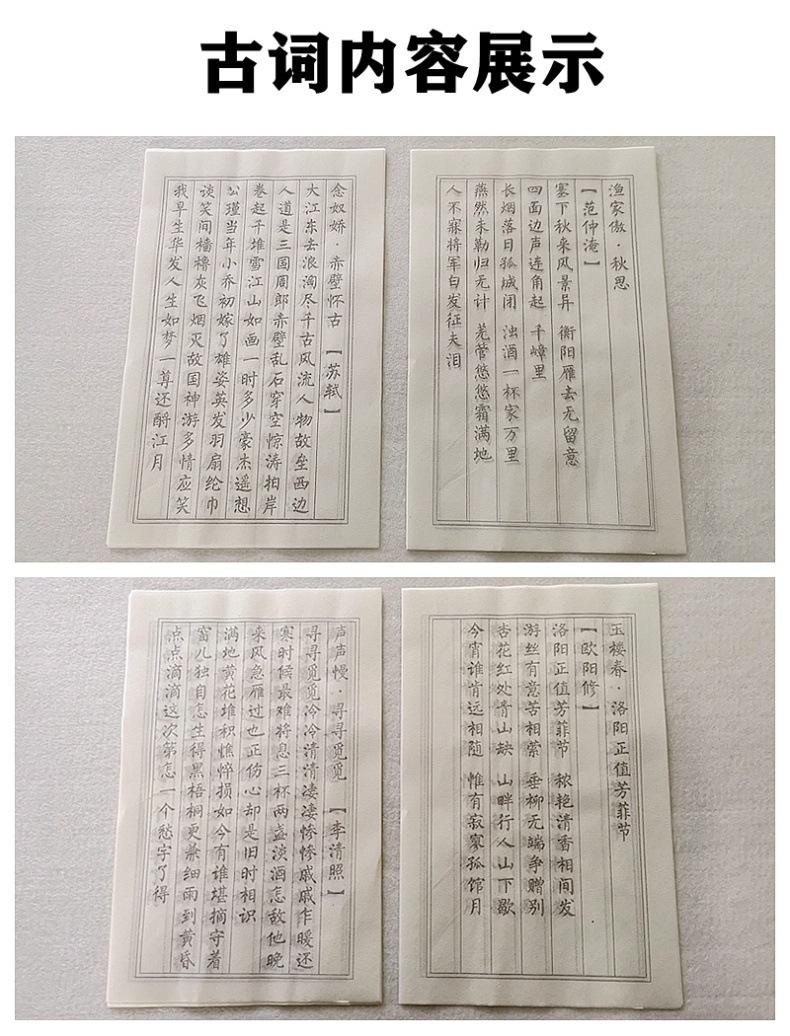 古词内容展示
念奴娇·赤壁怀古 【苏轼】
大江东去浪淘尽千古风流人物故垒西边
人道是三国周郎赤壁乱石穿空惊涛拍岸
卷起千堆雪江山如画一时多少豪杰遥想
公瑾当年小乔初嫁了雄姿英发羽扇纶巾
谈笑间樯橹灰飞烟灭故国神游多情应笑
我早生华发人生如梦一尊还酹江月
渔家傲·秋思
【范仲淹】
塞下秋来风景异 衡阳雁去无留意
四面边声连角起 千嶂里
长烟落日孤城闭 浊酒一杯家万里
燕然未勒归无计 羌管悠悠霜满地
人不寐将军白发征夫泪
声声慢·寻寻觅觅 【李清照】
寻寻觅觅冷冷清清凄凄惨惨戚戚乍暖还
寒时候最难将息三杯两盏淡酒怎敌他晚
来风急雁过也正伤心却是旧时相识
满地黄花堆积憔悴损如今有谁堪摘守着
窗儿独自怎生得黑梧桐更兼细雨到黄昏
点点滴滴这次第怎一个愁字了得
玉楼春·洛阳正值芳菲节
【欧阳修】
洛阳正值芳菲节 秾艳清香相间发
游丝有意苦相萦 垂柳无端争赠别
杏花红处青山缺 山畔行人山下歇
今宵谁肯远相随 惟有寂寥孤馆月